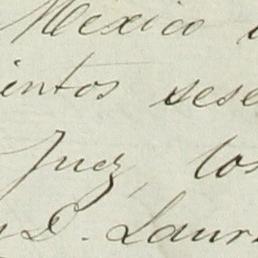 Mexico
intos sese
Juez, los
D. Laur